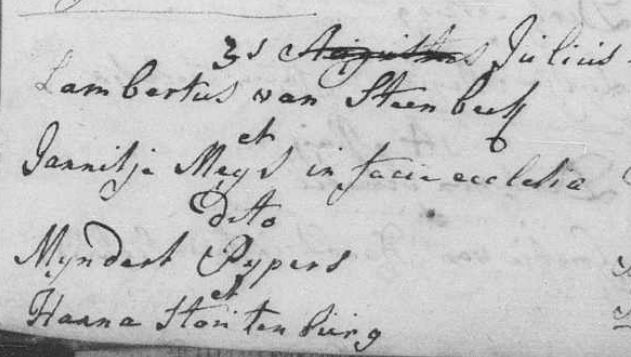 31 Augustus Julius
Lambertus van Steenbeek
et
Jannitje Meys in facie ecclesia
dito
Myndert Pypers
et
Hanna Stoutenburg